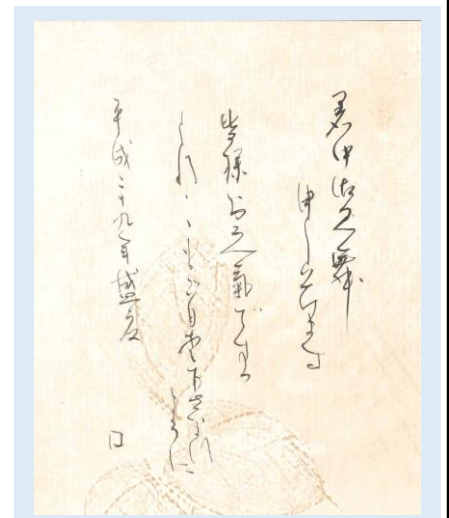 暑中御見舞
申し上げます
皆様お元氣で
くれ〴〵もご自愛下さい
ように
平成二十九年盛夏